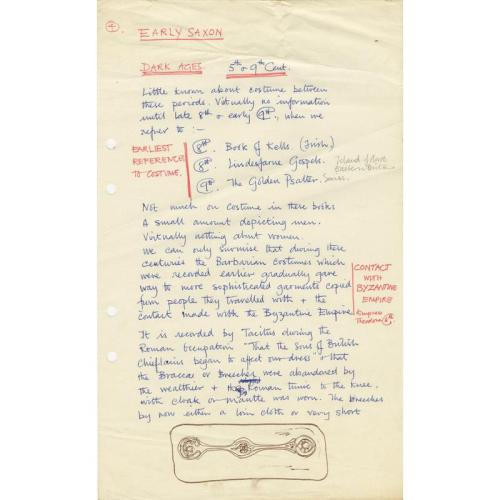 4. EARLY SAXON
DARK AGES. 5th to 9th Cent.
Little known about costume between
these periods. Virtually no information
until late 8th or early 9th, when we
refer to :-
EARLIEST
REFERENCES
TO COSTUME.
8th. Book of Kells. (Irish)
8th. Lindesfarne Gospels. Island of
Eastern
9th. The Golden Psalter.
Not much on costume in these books
A small amount depicting men.
Virtually nothing about women.
We can only surmise that during these
centuries the Barbarian costumes which
were recorded earlier gradually gave
way to more sophisticated garments copied
from people they travelled with + the
contact made with the Byzantine Empire
CONTACT
WITH
BYZANTINE
EMPIRE
Empress
Theodora 6th.
It is recorded by Tacitus during the
Roman Occupation "That the Sons of British
Chieftains began to affect our dress" + that
the Braccae or Breeches were abandoned by
the wealthier + the Roman tunic to the knee,
with cloak or mantle was worn. The breeches
by now either a loin cloth or very short